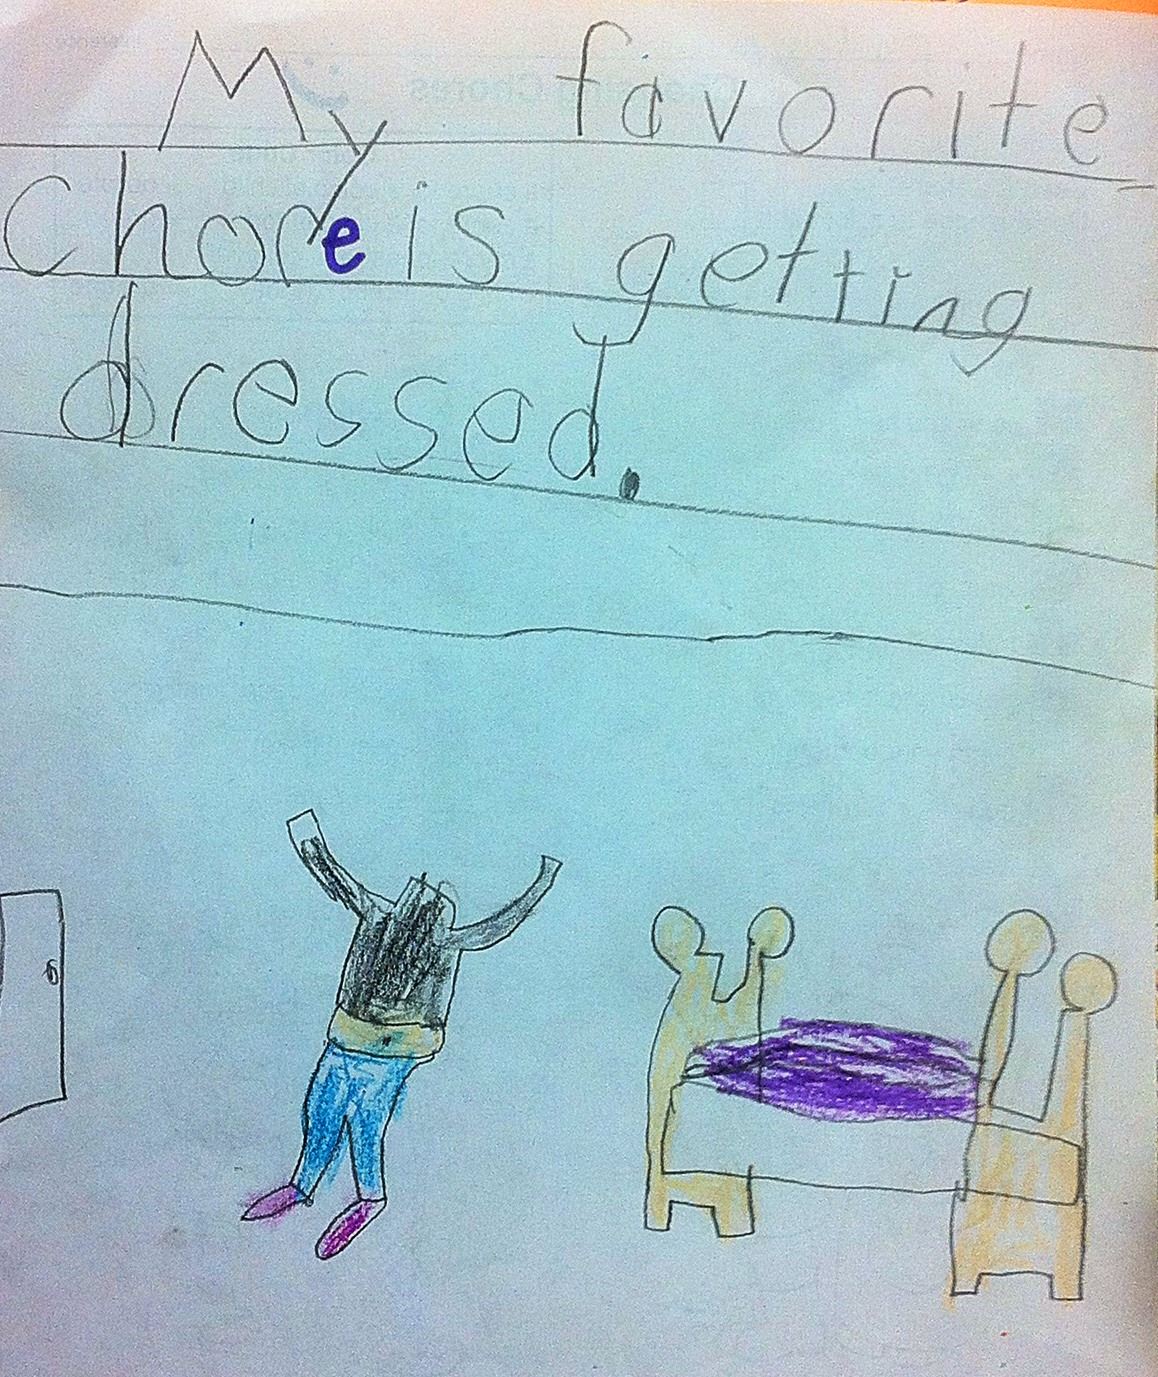 My favorite
chore is getting
dressed.